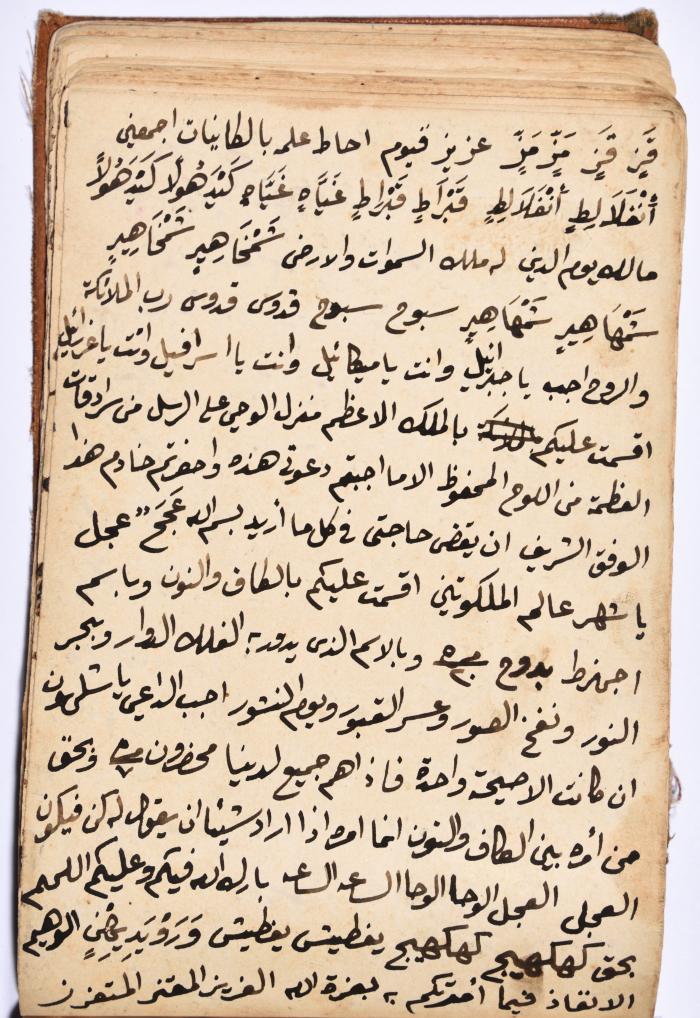 قَزٍ قَزٍ مَزٍّ مَزٍّ عزيز قيوم احاط علمه بالكائنات اجمعين
أَنْغَلَالِطٍ أَنْغَلَالِطٍ قَبْرَاطٍ قَبْرَاطٍ غَيَّاهٍ غَيَّاهٍ كَيْدَهُولًا كَيْدَهُولًا
مالك يوم الدين له ملك السموات والارض شَمْخَاهِيرٍ شَمْخَاهِيرٍ
شَمْهَاهِيرٍ شَمْهَاهِيرٍ سبوح سبوح قدوس قدوس رب الملائكة
والروح اجب يا جبرائيل وانت يا ميكائيل وانت يا اسرافيل وانت يا عزرائيل
اقسمت عليكم بالملك الاعظم منزل الوحي على الرسل من سرادقات
العظمة من اللوح المحفوظ الا ما اجبتم دعوتي هذه واحضرتم خادم هذا
الوفق الشريف ان يقضى حاجتى في كل ما أريد بسم الله عَجَج عجل
يا شهر عالم الملكوتين اقسمت عليكم بالكاف والنون وباسم
اجهزط بدوح وبالاسم الذى يدور به الفلك الدوار وببحر
النور ونفخ الصور وعسر القبور ويوم النشور اجب الداعي يا شلمون
ان كانت الا صيحة واحدة فاذاهم جميع لدينا محضرون وبحق
من أمره بين الكاف والنون انما امره اذا اراد شيئا ان يقول له كن فيكون
العجل العجل الوحا الوحا الساعه الساعه بارك الله فيكم وعليكم اللهم
بحق كهكهيج كهكهيج يغطيش يغطيش الوهيم
الا نفاذ فيما أمرتكم به بعزة الله العزيز المعتز المتعزز